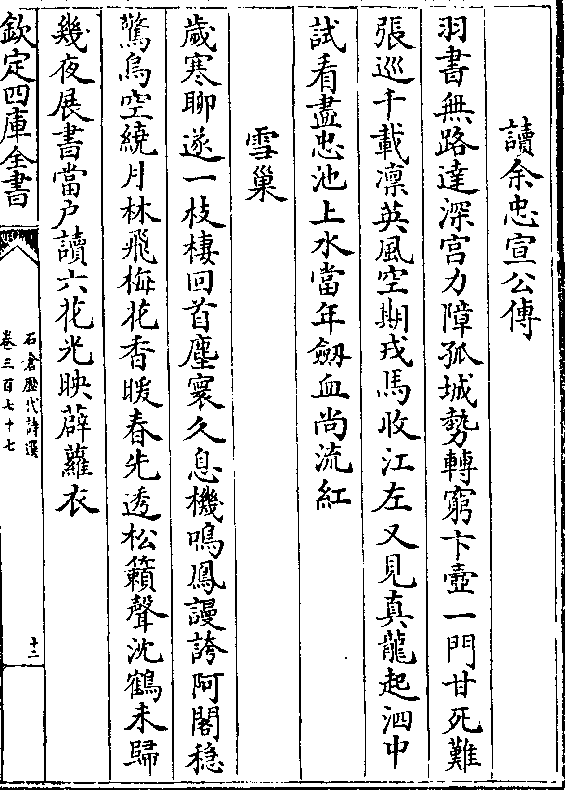 讀余忠宣公傳
羽書無路達深宫力障孤城勢轉窮卞壼一門甘死難
張巡千載凛英風空期戎馬收江左又見真龍起泗中
試看盡忠池上水當年劒血尚流紅
雪巢
歳寒聊遂一枝棲回首塵寰久息機鳴鳳謾誇阿閣穏
驚烏空繞月林飛梅花香暖春先透松籟聲沈鶴未歸
幾夜展書當户讀六花光映薜蘿衣
欽定四庫全書
石倉歴代詩選
卷三百七十七
十二